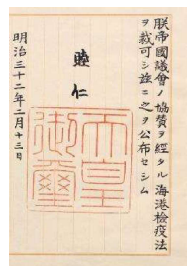 朕帝國議會ノ協贊ヲ經タル海港檢疫法
ヲ裁可シ玆ニ之ヲ公布セシム
睦仁
天皇
御璽
明治三十二年二月十三日